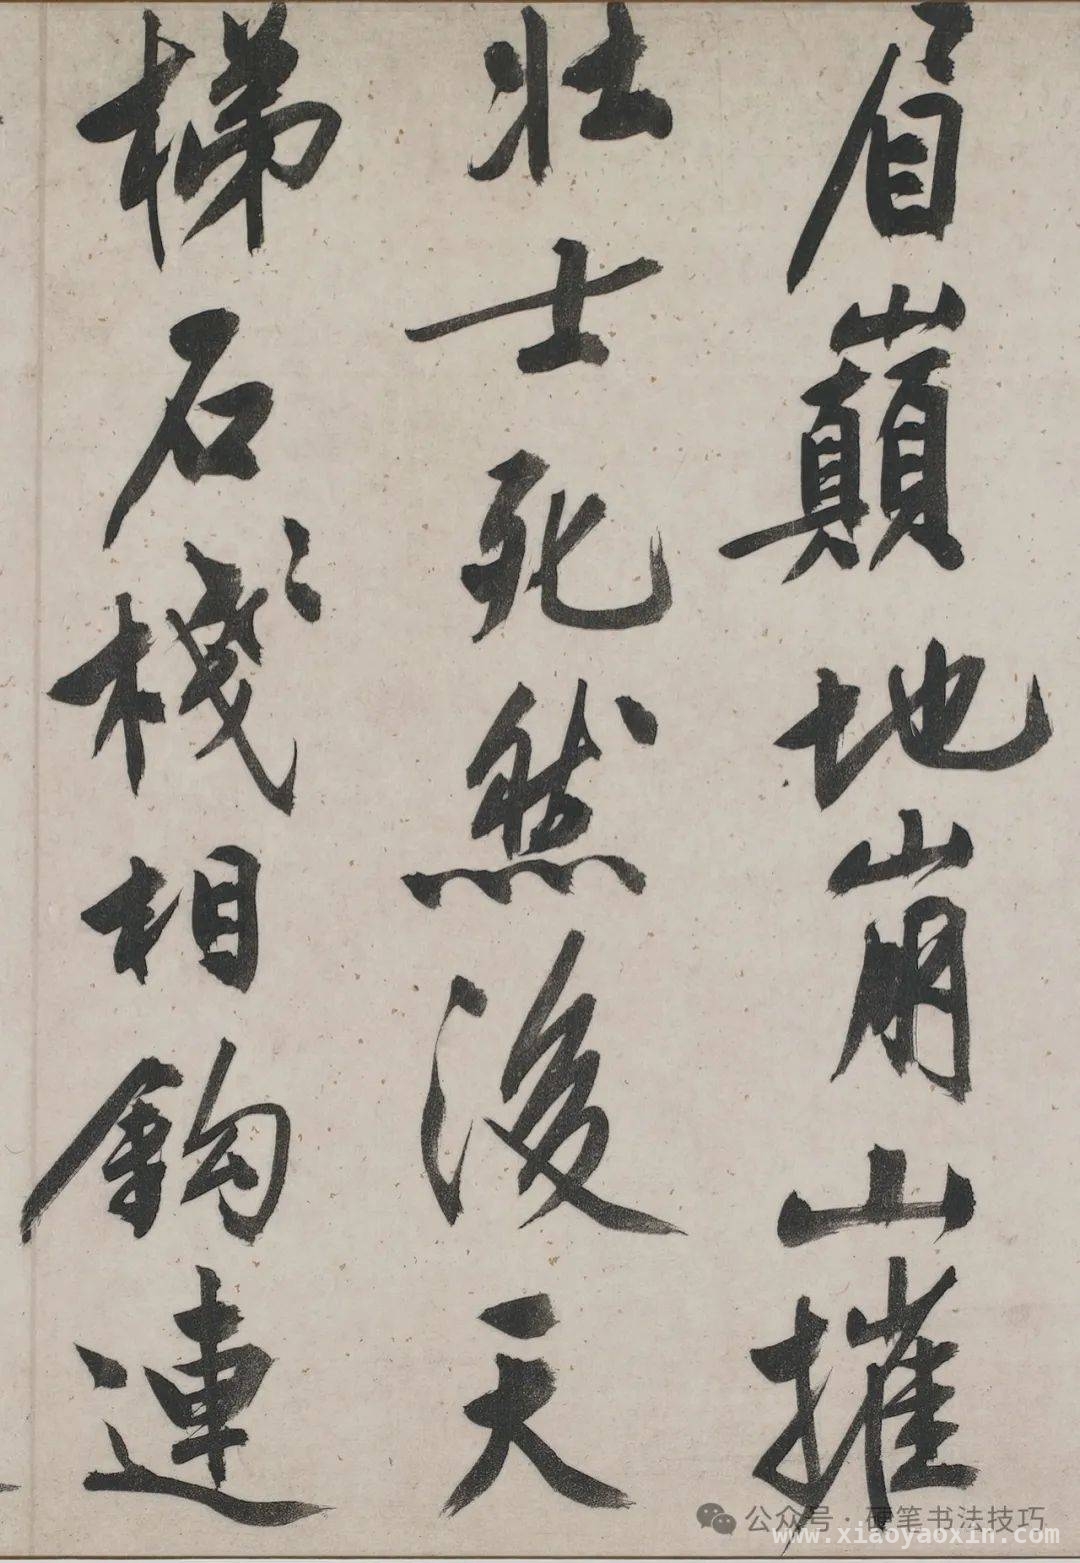 眉巔地崩山摧
壯士死然後天
梯石棧相鈎連
公众号·硬笔书法技巧
www.xiaoyaoxin.com